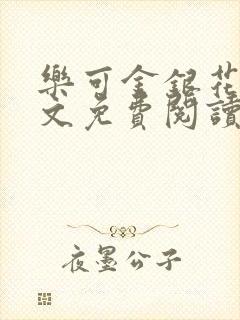 樂可金銀花
文免費閱讀
夜墨公子